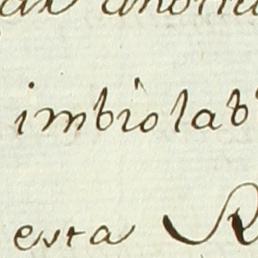 imbiolab
esta R